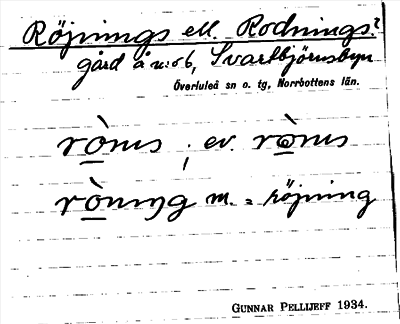 Röjnings ell. Rodnings?
gård å n:o 6, Svartbjörnsbyn
Överluleå sn o. tg, Norrbottens län.
ròns ; ev. ròns
ròning m. = röjning
GUNNAR PELLIJEFF 1934.